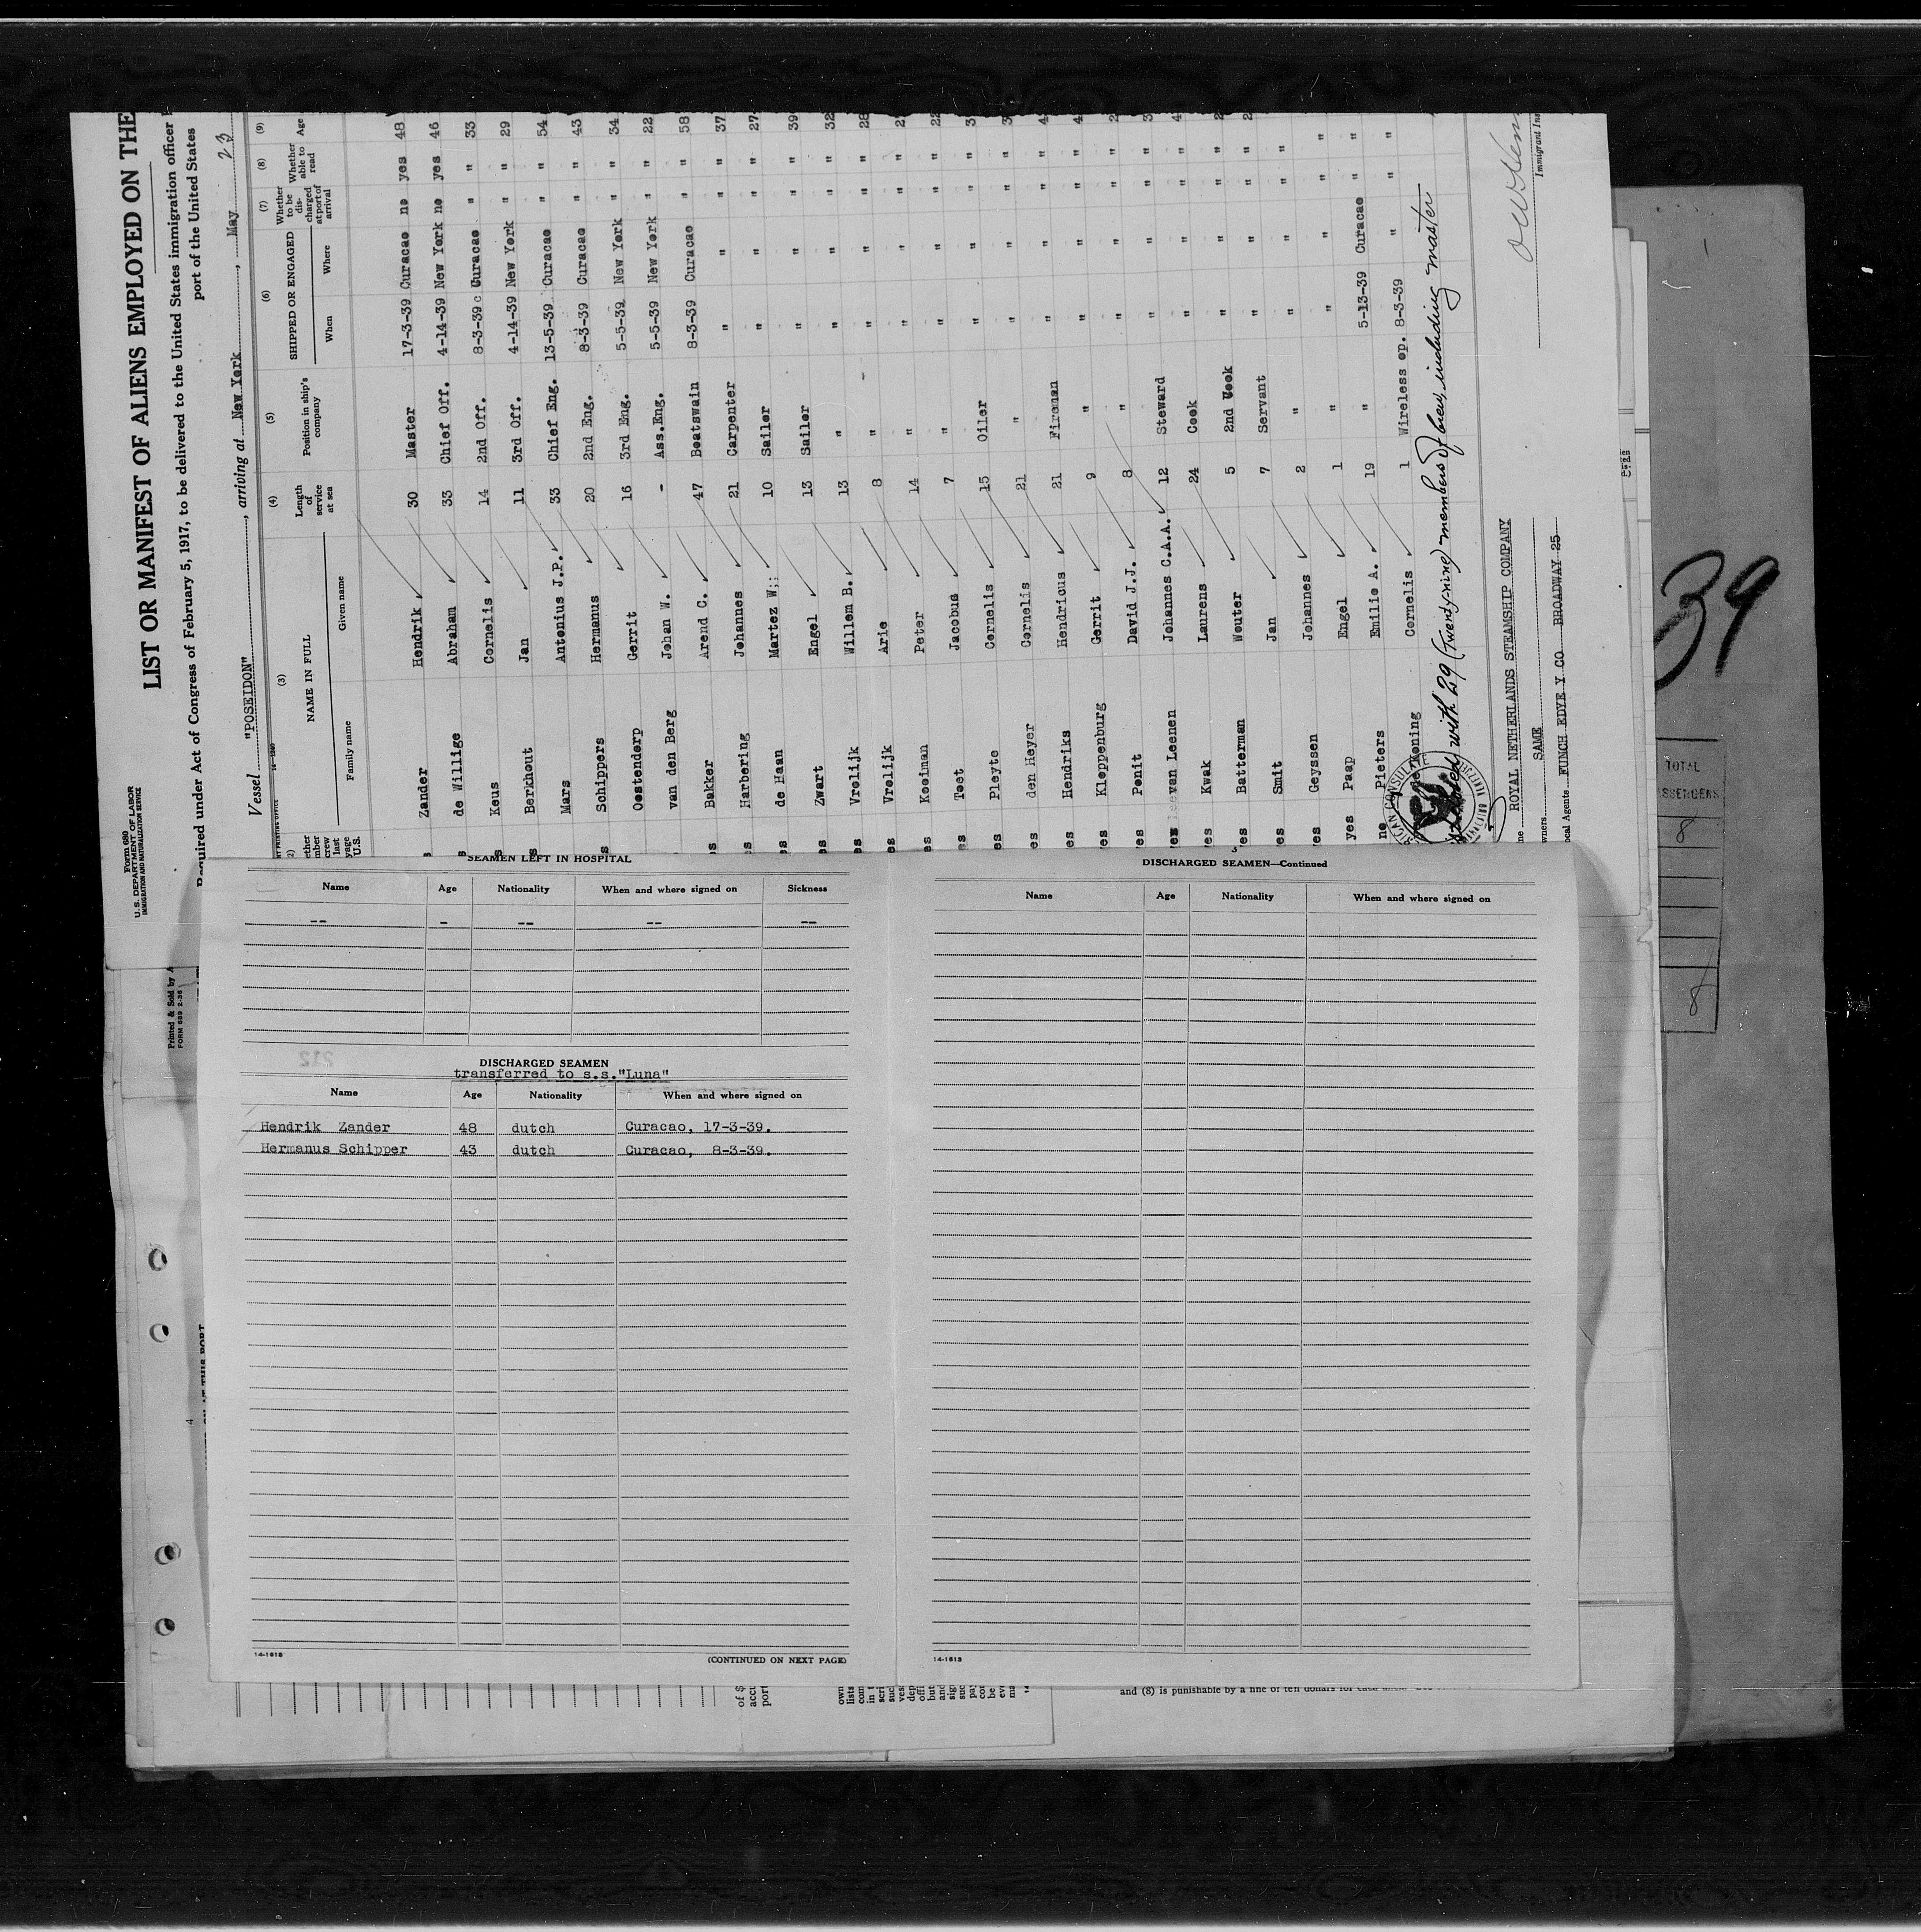 LIST OR MANIFEST OF ALIENS EMPLOYED ON THE
Form 680
U. S. DEPARTMENT OF LABOR
IMMIGRATION AND NATURALIZATION SERVICE
Required under Act of Congress of February 5, 1917, to be delivered to the United States immigration officer
port of the United States
Vessel "POSEIDON", arriving at New York, May 23
(3) (4) (5) (6) (7) (8) (9)
NAME IN FULL Length of service at sea Position in ship's company SHIPPED OR ENGAGED Whether to be discharged at port of arrival Whether able to read Age
Family name Given name When Where
Zander Hendrik 30 Master 17-3-39 Curacao no yes 48
de Willige Abraham 33 Chief Off. 4-14-39 New York no yes 46
Keus Cornelis 14 2nd Off. 8-3-39 c Curacao " " 33
Berkhout Jan 11 3rd Off. 4-14-39 New York " " 29
Mars Antonius J.P. 33 Chief Eng. 13-5-39 Curacao " " 54
Schippers Hermanus 20 2nd Eng. 8-3-39 Curacao " " 43
Oostendorp Gerrit 16 3rd Eng. 5-5-39 New York " " 34
van den Berg Johan W. - Ass.Eng. 5-5-39 New York " " 22
Bakker Arend C. 47 Boatswain 8-3-39 Curacao " " 58
Harbering Johannes 21 Carpenter " " " " 37
de Haan Martez W;; 10 Sailor " " " " 27
Zwart Engel 13 Sailor " " " " 39
Vrolijk Willem B. 13 " " " " " 32
Vrolijk Arie 8 " " " " " 28
Kooiman Peter 14 " " " " "
Toet Jacobus 7 " " " " " 22
Pleyte Cornelis 15 Oiler " " " "
den Heyer Cornelis 21 " " " " "
Hendriks Hendricus 21 Fireman " " " "
Kleppenburg Gerrit 9 " " " " "
Penit David J.J. 8 " " " " "
van Leenen Johannes C.A.A. 12 Steward " " " "
Kwak Laurens 24 Cook " " " "
Batterman Wouter 5 2nd Cook " " " "
Smit Jan 7 Servant " " " "
Geyssen Johannes 2 " " " " "
yes Paap Engel 1 " " " " "
no Pieters Emilie A. 19 " 5-13-39 Curacao " "
Koning Cornelis 1 Wireless op. 8-3-39 " " "
with 29 (twenty nine) members of crew, including master
ROYAL NETHERLANDS STEAMSHIP COMPANY
SAME
Local Agents FUNCH EDYE Y CO BROADWAY 25
Immigrant Ins
39
TOTAL
8
8
SEAMEN LEFT IN HOSPITAL
Name Age Nationality When and where signed on Sickness
-- - -- -- --
212
DISCHARGED SEAMEN
transferred to s.s."Luna"
Name Age Nationality When and where signed on
Hendrik Zander 48 dutch Curacao, 17-3-39.
Hermanus Schipper 43 dutch Curacao, 8-3-39.
14-1613
(CONTINUED ON NEXT PAGE)
3
DISCHARGED SEAMEN—Continued
Name Age Nationality When and where signed on
14-1613
Printed & Sold by
FORM 689 2-36
and (8) is punishable by a fine of ten dollars for each